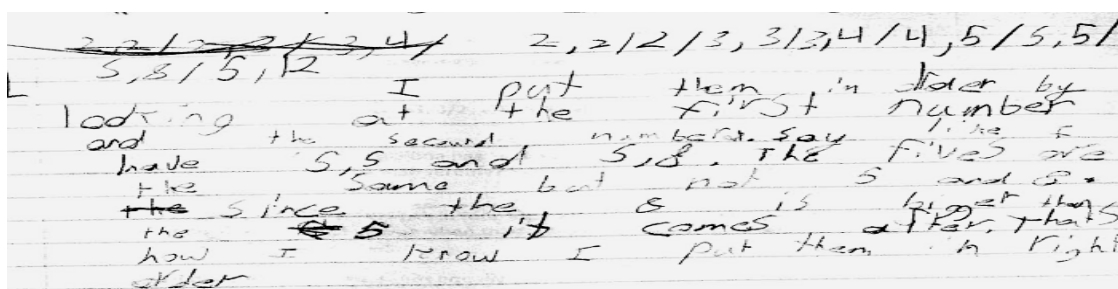 2,2/2,2/3,4/ 2,2/2/3,3/3,4/4,5/5,5/
5,8/5,12
I put them in order by
looking at the first number
and the second number. say like I
have 5,5 and 5,8. The fives are
the same but not 5 and 8.
the since the 8 is biger then
the 5 it comes after. thats
how I know I put them in right
order